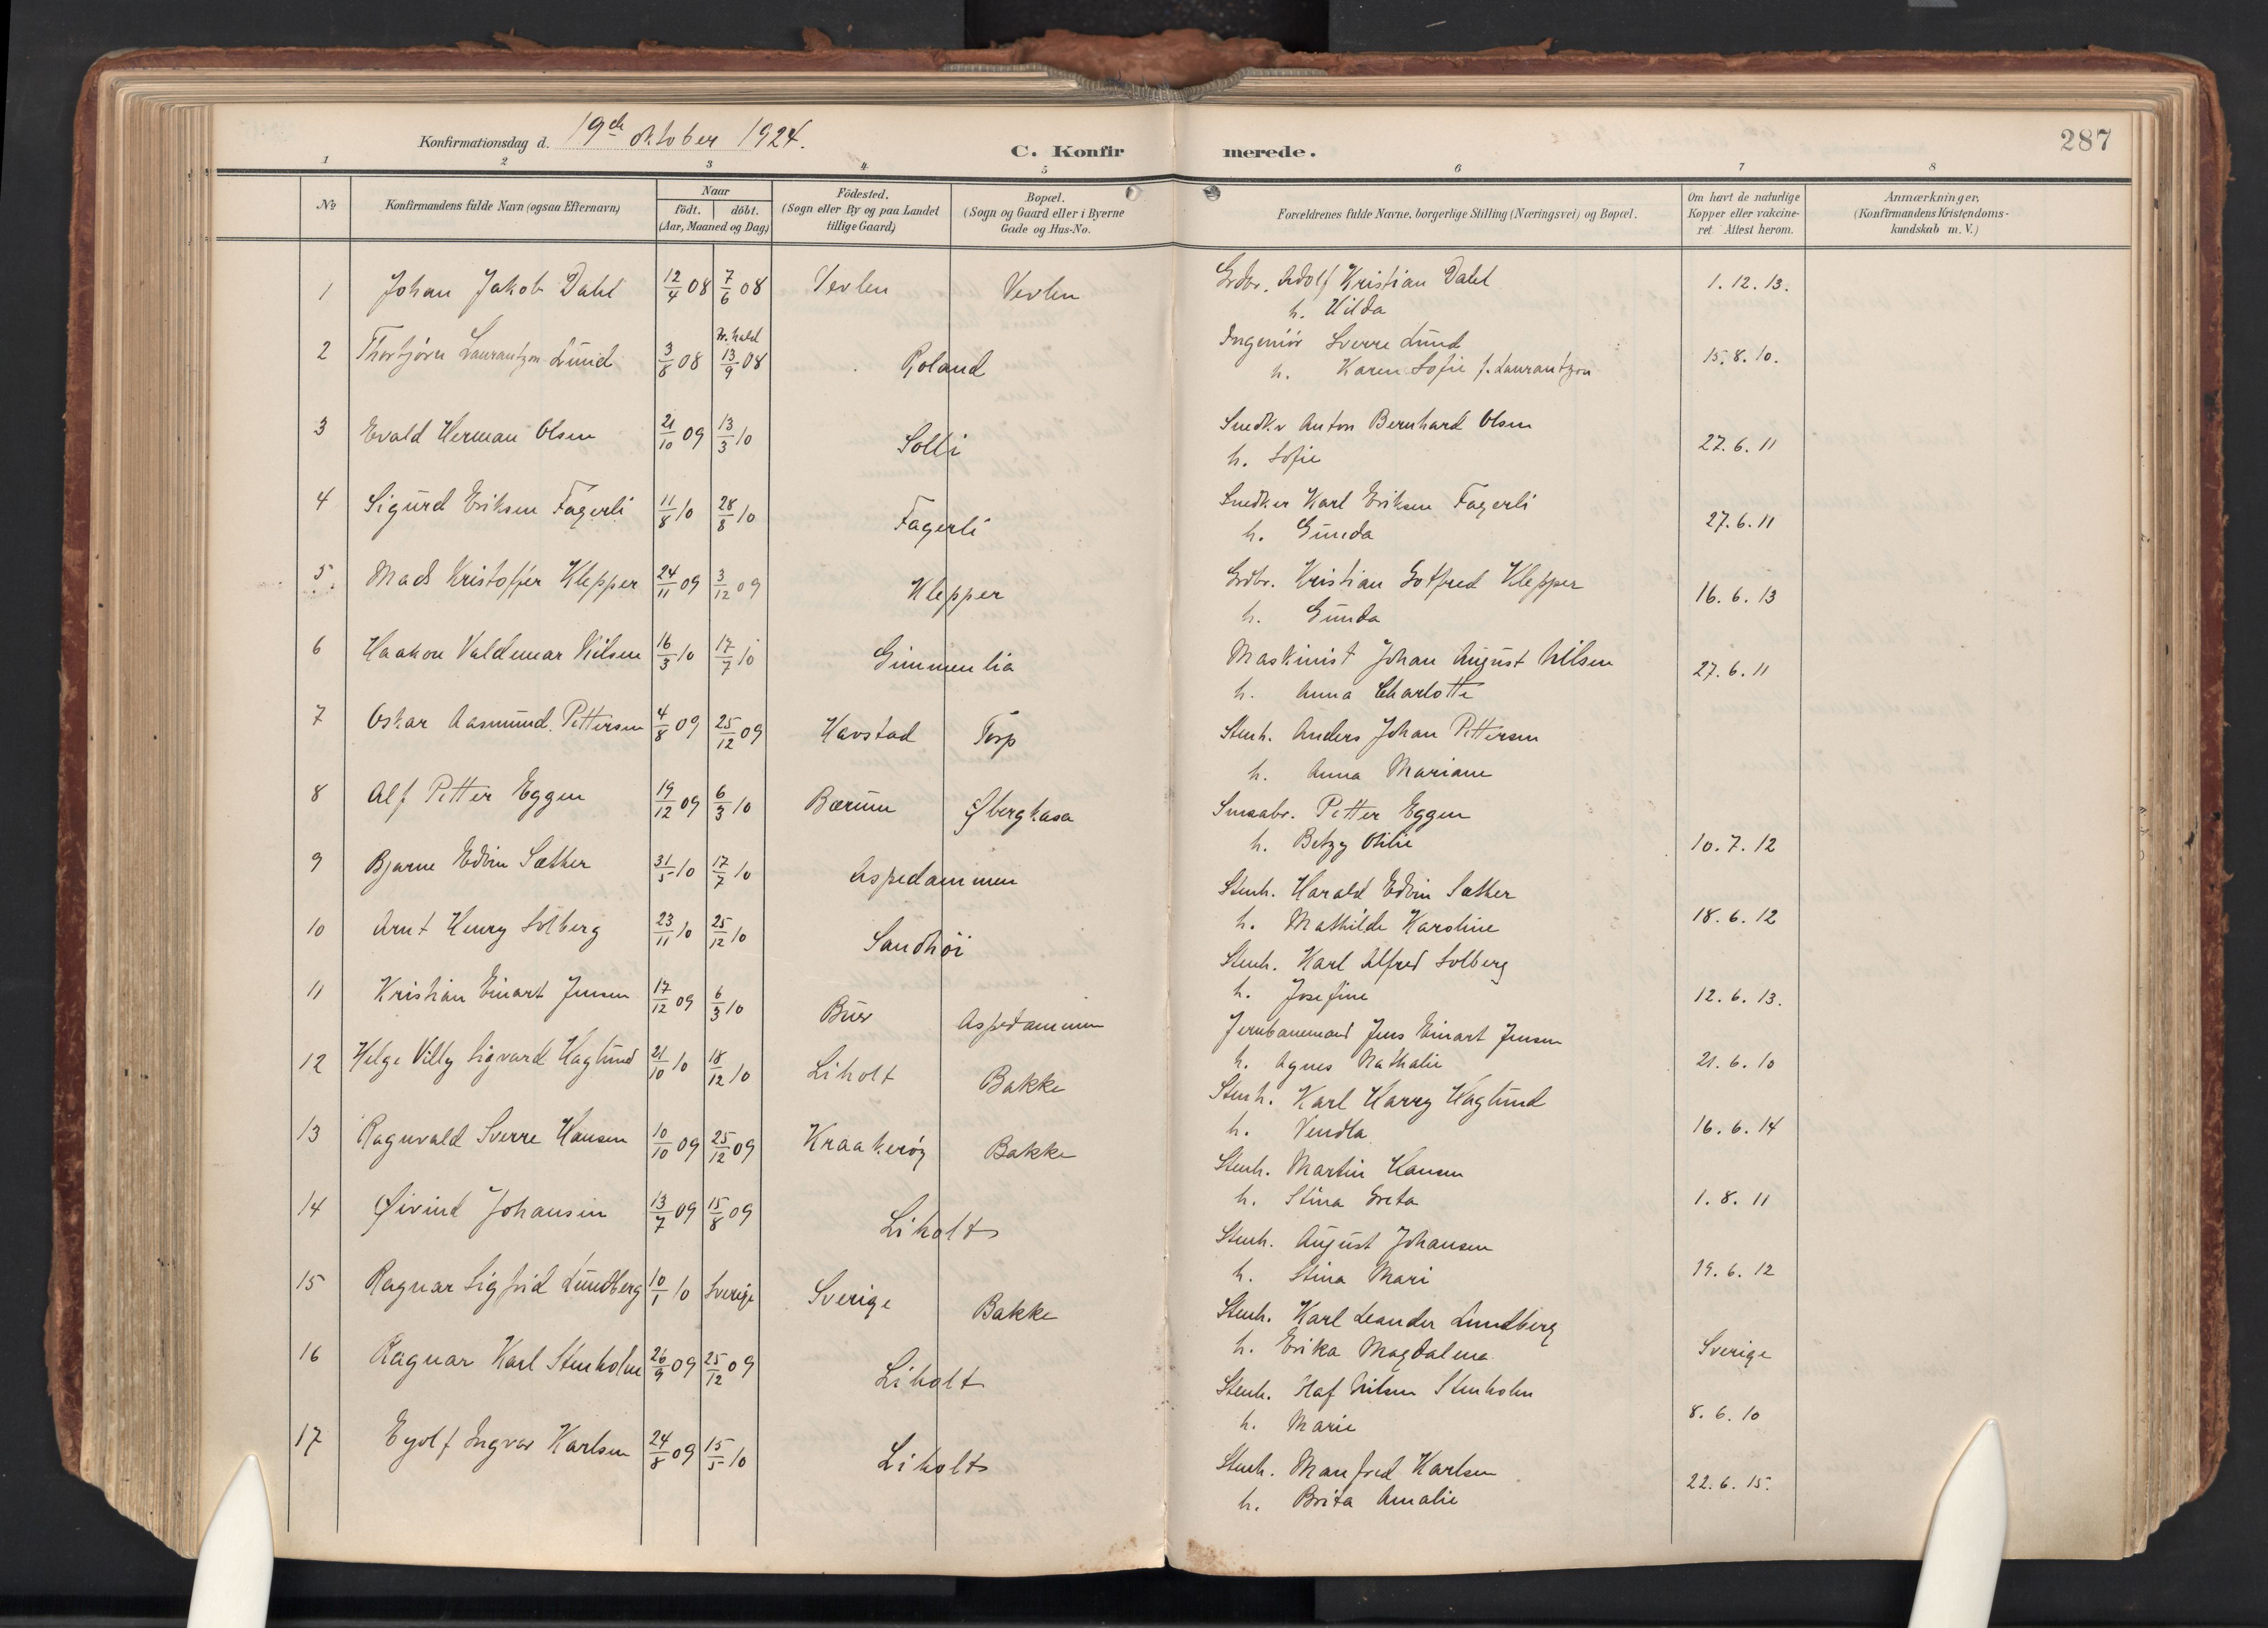 Konfirmationsdag d. 19de oktober 1924.
C. Konfirmerede.
287
1 2 3 4 5 6 7 8
No
Konfirmandens fulde Navn (ogsaa Efternavn)
Naar
födt. döbt.
(Aar, Maaned og Dag)
Födested.
(Sogn eller By og paa Landet
tillige Gaard)
Bopæl.
(Sogn og Gaard eller i Byerne
Gade og Hus-No.
Forældrenes fulde Navne, borgerlige Stilling (Næringsvei) og Bopæl.
Om havt de naturlige
Kopper eller vakcine-
ret. Attest herom.
Anmærkninger,
(Konfirmandens Kristendoms-
kundskab m. V.)
1 Johan Jakob Dahl 12/4 08 7/6 08 Vevlen Vevlen Grdbr. Adolf Kristian Dahl 1.12.13.
h. Hilda
2 Thorbjörn Laurantzon Lund 3/8 08 Fr.hald 13/9 08 Roland Ingeniör Sverre Lund 15.8.10.
h. Karen Sofie f. Laurantzon
3 Evald Herman Olsen 21/10 09 13/3 10 Solli Snedker Anton Bernhard Olsen 27.6.11
h. Sofie
4 Sigurd Eriksen Fagerli 11/8 10 28/8 10 Fagerli Snedker Karl Eriksen Fagerli 27.6.11
h. Gunda
5. Mads Kristoffer Klepper 24/11 09 3/12 09 Klepper Grdbr. Kristian Gotfred Klepper 16.6.13
h. Gunda
6 Haakon Valdemar Nilsen 16/3 10 17/7 10 Gimmenlia Maskinist Johan August Nilsen 27.6.11
h. Anna Charlotte
7 Oskar Aasmund Pettersen 4/8 09 25/12 09 Havstad Torp Stenh. Anders Johan Pettersen
h. Anna Mariane
8 Alf Petter Eggen 19/12 09 6/3 10 Bærum Øberghasa Smaabr. Petter Eggen
h. Betzy Otilie 10.7.12
9 Bjarne Edvin Sæther 31/5 10 17/7 10 Aspedammen Stenh. Harald Edvin Sæther
h. Mathilde Karoline 18.6.12
10 Arnt Henry Solberg 23/11 10 25/12 10 Sandhöi Stenh. Karl Alfred Solberg
h. Josefine 12.6.13.
11 Kristian Einart Jensen 17/12 09 6/3 10 Buer Aspedammen Jernbanemand Jens Einart Jensen
h. Agnes Nathalie 21.6.10
12 Helge Villy Sigvard Haglund 21/10 10 18/12 10 Liholt Bakke Stenh. Karl Harry Haglund
h. Vendla 16.6.14
13 Ragnvald Sverre Hansen 10/10 09 25/12 09 Kraakeröy Bakke Stenh. Martin Hansen
h. Stina Greta 1.8.11
14 Øivind Johansen 13/7 09 15/8 09 Liholt Stenh. August Johansen
h. Stina Mari 19.6.12
15 Ragnar Sigfrid Lundberg 10/1 10 Sverige Sverige Bakke Stenh. Karl Leander Lundberg
h. Erika Magdalena Sverige
16 Ragnar Karl Stenholm 26/9 09 25/12 09 Liholt Stenh. Olaf Nilsen Stenholm
h. Marie 8.6.10
17 Eyolf Ingvar Karlsen 24/8 09 15/5 10 Liholt Stenh. Manfred Karlsen
h. Brita Amalie 22.6.15.